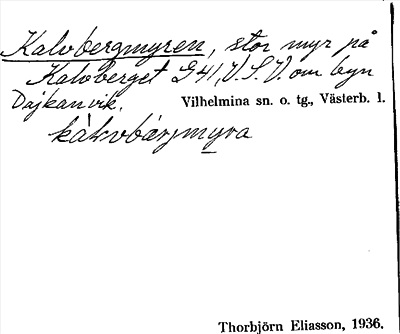 Kalvbergmyren, stor myr på
Kalvberget G 41, V.S.V. om byn
Dajkanvik. Vilhelmina sn. o. tg., Västerb. l.
kàlvbárjmyra
Thorbjörn Eliasson, 1936.